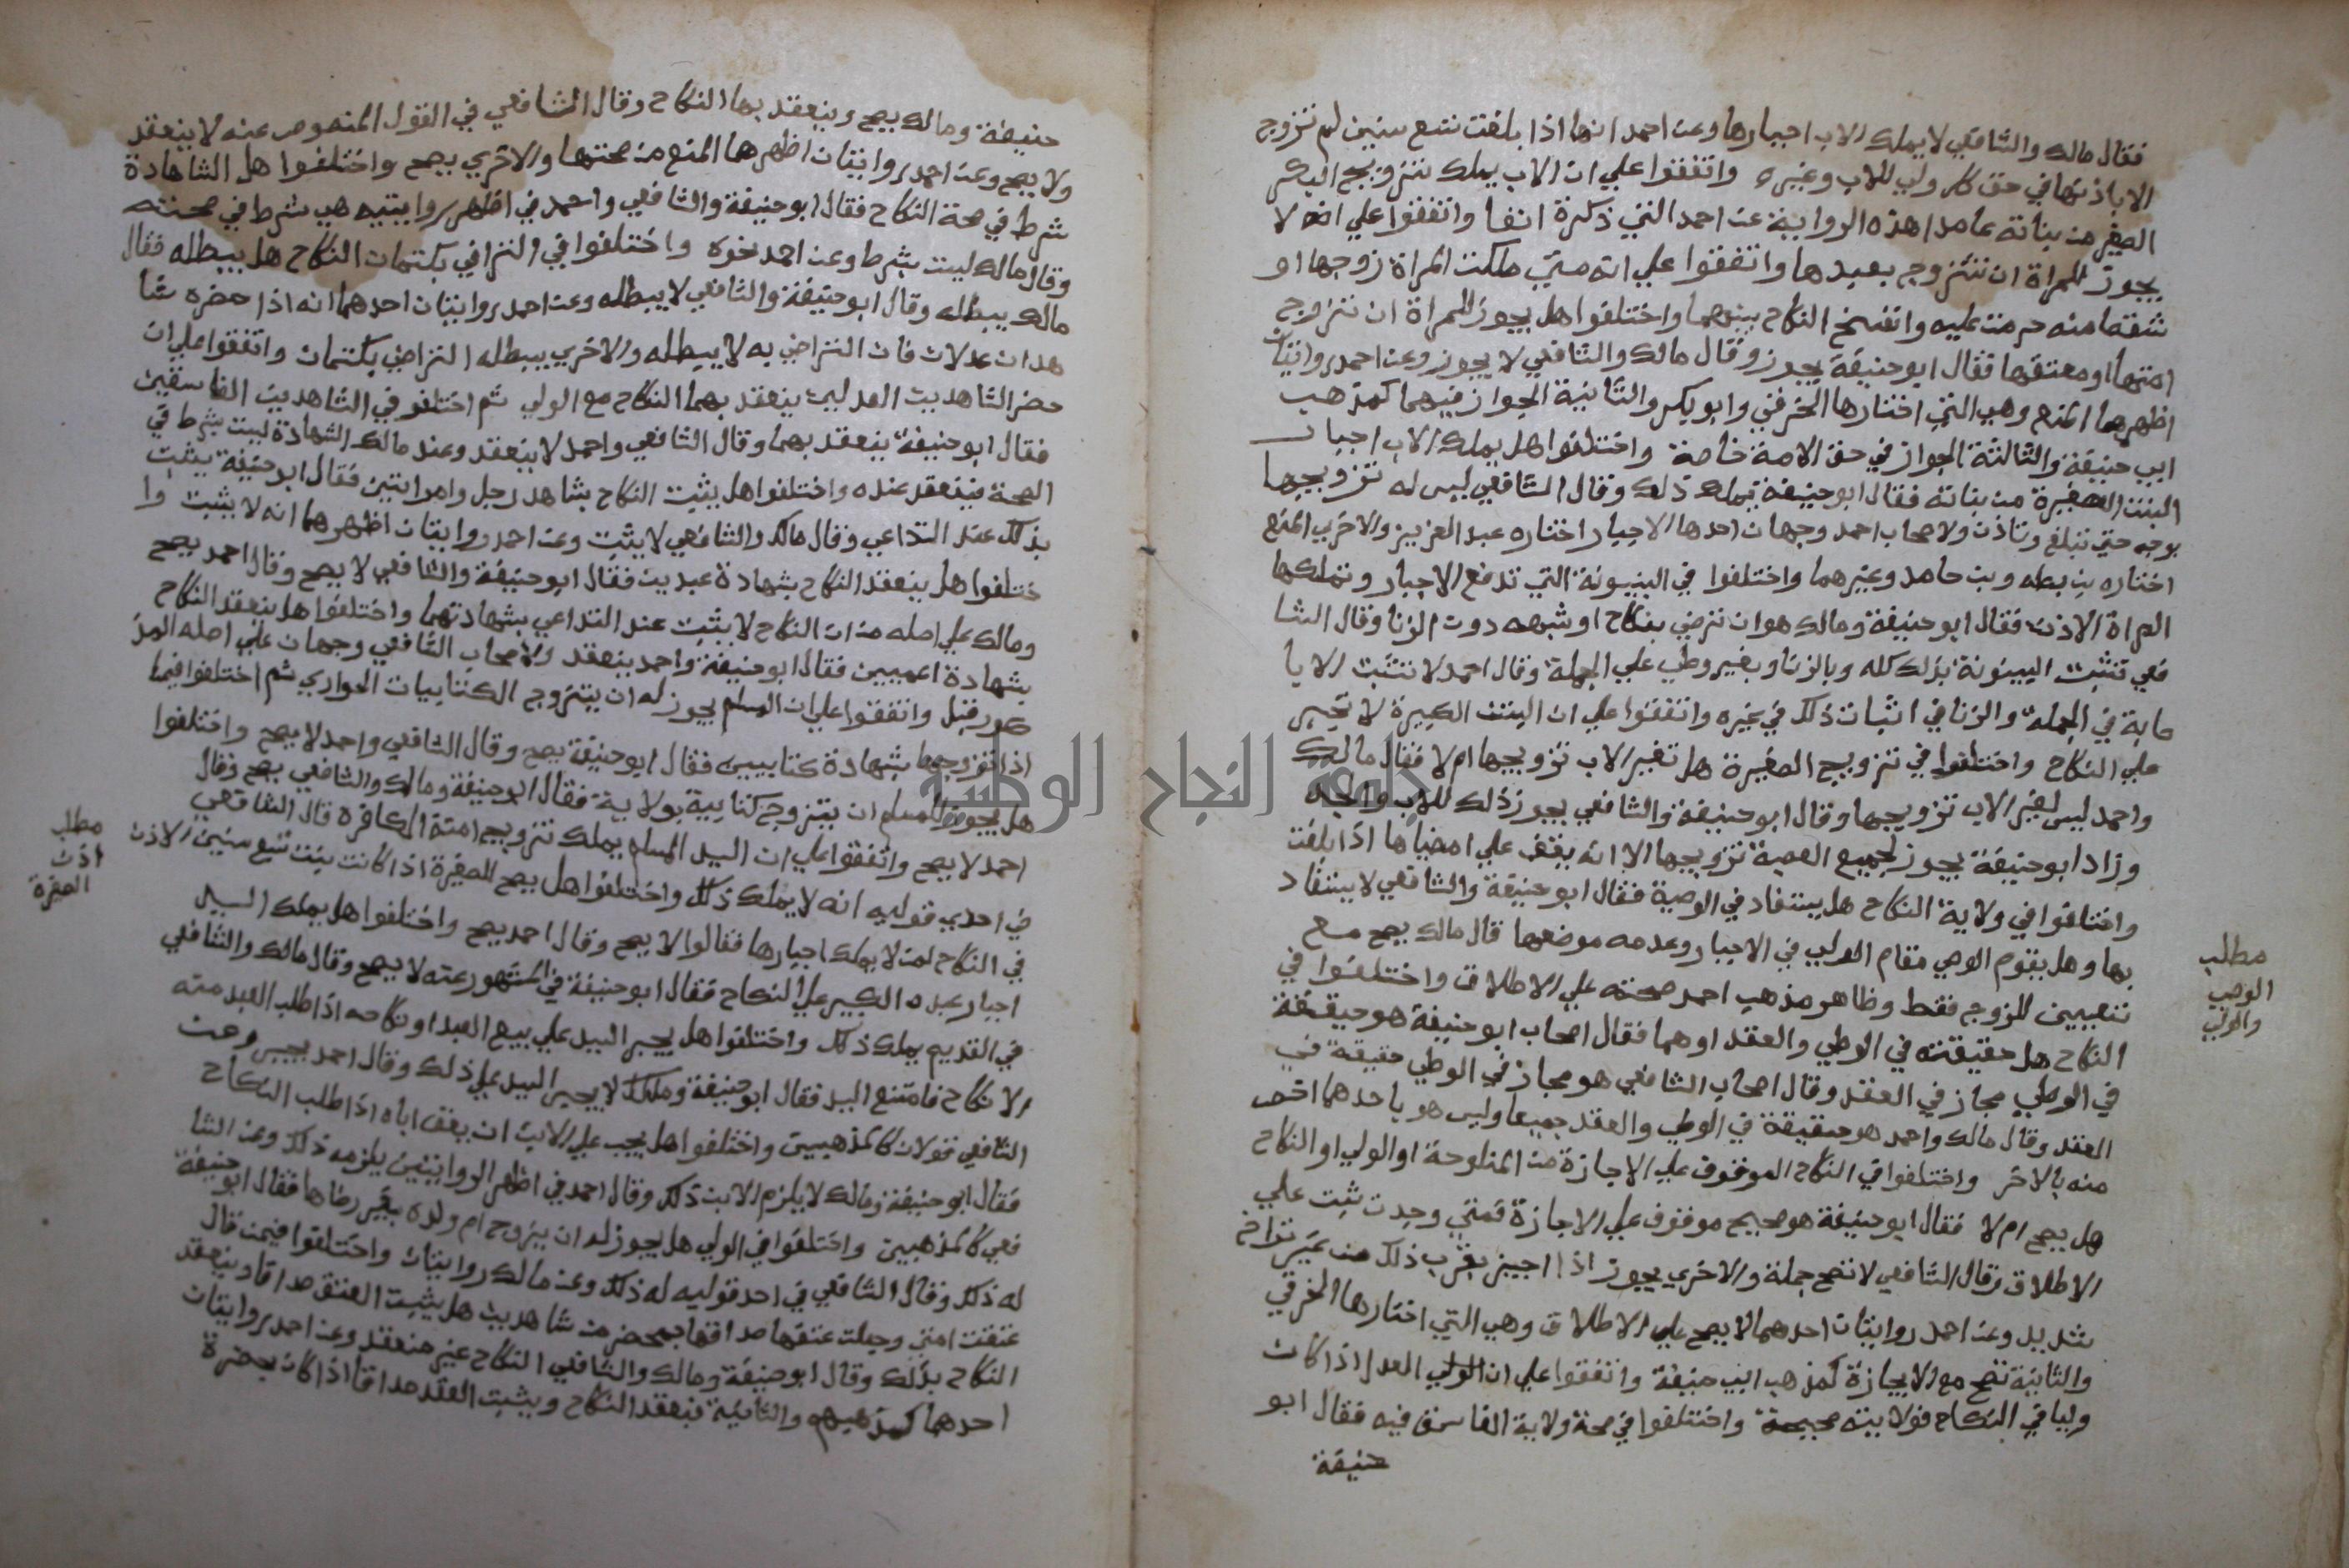 فقال مالك والشافعي لا يملك الاب اجبارها وعن احمد انها اذا بلغت تسع سنين لم تزوج
الا باذنها في حق كل ولي للاب وغيره واتفقوا علي ان الاب يملك تزويج البكر
الصغير من بناته ما عدا هذه الرواية عن احمد التي ذكرة انفا واتفقوا علي انه لا
يجوز للمراة ان تتزوج بعبدها واتفقوا علي انه متي ملكت المراة زوجها او
شقصا منه حرمت عليه وانفسخ النكاح بينهما واختلفوا هل يجوز للمراة ان تتزوج
امتها او معتقها فقال ابو حنيفة يجوز وقال مالك والشافعي لا يجوز وعن احمد روايتان
اظهرهما المنع وهي التي اختارها الخرقي وابو بكر والثانية الجواز فيهما كمذهب
ابي حنيفة والثالثة الجواز في حق الامة خاصة واختلفوا هل يملك الاب اجبار
البنت الصغيرة من بناته فقال ابو حنيفة يملك ذلك وقال الشافعي ليس له تزويجها
بوجه حتي تبلغ وتاذن ولاصحاب احمد وجهان احدها الاجبار اختاره عبد العزيز والاخري المنع
اختاره بن بطه وبن حامد وغيرهما واختلفوا في البينونة التي تدفع الاجبار وتملكها
المراة الاذن فقال ابو حنيفة ومالك هو ان ترضي بنكاح او شبهه دون الزنا وقال الشا
فعي تثبت البينونة بذلك كله وبالزنا وبغير وطي علي الجملة وقال احمد لا تثبت الا يا
صابة في الجملة والزنا في اثبات ذلك في غيره واتفقوا علي ان البنت الكبيرة لا تجبر
علي النكاح واختلفوا في تزويج الصغيرة هل تغير الاب تزويجها ام لا فقال مالك
واحمد ليس لغير الاب تزويجها وقال ابو حنيفة والشافعي يجوز ذلك للاب والجد
وزاد ابو حنيفة يجوز لجميع العصبة تزويجها الا انه يقف علي امضاها اذا بلغت
واختلفوا في ولاية النكاح هل يستفاد في الوصية فقال ابو حنيفة والشافعي لا يستفاد
بها وهل يقوم الوصي مقام الولي في الاجبار وعدمه موضعها قال مالك يصح مع
تعيين المزوج فقط وظاهر مذهب احمد صحته علي الاطلاق واختلفوا في
النكاح هل حقيقته في الوطي والعقد او هما فقال اصحاب ابو حنيفة هو حقيقة
في الوطي مجاز في العقد وقال اصحاب الشافعي هو مجاز في الوطي حقيقة في
العقد وقال مالك واحمد هو حقيقة في الوطي والعقد جميعا وليس هو باحدهما اخص
منه بالاخر واختلفوا في النكاح الموقوف علي الاجازة من المنكوحة او الولي او النكاح
هل يصح ام لا فقال ابو حنيفة هو صحيح موقوف علي الاجازة فمتي وجدت ثبت علي
الاطلاق وقال الشافعي لا تصح جملة والاخري يجوز اذا اجيز بقرب ذلك من غير تراخ
شديد وعن احمد روايتان احدهما لا يصح علي الاطلاق وهي التي اختارها الخرقي
والثانية تصح مع الايجازة كمذهب ابي حنيفة واتفقوا علي ان الولي العدل اذا كان
وليا في النكاح فولايته صحيحة واختلفوا في صحة ولاية الفاسق فيه فقال ابو
حنيفة
مطلب
الوصي
والولي
حنيفة ومالك يصح وينعقد بها النكاح وقال الشافعي في القول المنصوص عنه لا ينعقد
ولا يصح وعن احمد روايتان اظهرهما المنع من صحتها والاخري يصح واختلفوا هل الشاهادة
شرط في صحة النكاح فقال ابو حنيفة والشافعي واحمد في اظهر روايتيه هي شرط في صحته
وقال مالك ليست بشرط وعن احمد نحوه واختلفوا في التراضي بكتمان النكاح هل يبطله فقال
مالك يبطله وقال ابو حنيفة والشافعي لا يبطله وعن احمد روايتان احدهما انه اذا حضره شا
هدان عدلان فان التراضي به لا يبطله والاخري يبطله التراضي بكتمان واتفقوا علي ان
حضر الشاهدين العدلين ينعقد بهما النكاح مع الولي ثم اختلفو في الشاهدين الفاسقين
فقال ابو حنيفة ينعقد بهما وقال الشافعي واحمد لا ينعقد وعند مالك الشهادة ليست بشرط في
الصحة فينعقد عنده واختلفوا هل يثبت النكاح بشاهد رجل وامراتين فقال ابو حنيفة يثبت
بذلك عند التداعي وقال مالك والشافعي لا يثبت وعن احمد روايتان اظهرهما انه لا يثبت وا
ختلفوا هل ينعقد النكاح بشهادة عبدين فقال ابو حنيفة والشافعي لا يصح وقال احمد يصح
ومالك علي اصله من ان النكاح لا يثبت عند التداعي بشهادتهما واختلفوا هل ينعقد النكاح
بشهادة اعميين فقال ابو حنيفة واحمد ينعقد ولاصحاب الشافعي وجهان علي اصله المذ
كور قبل واتفقوا علي ان المسلم يجوز له ان يتزوج الكتابيات الحواري ثم اختلفوا فيما
اذا تزوجها بشهادة كتابيين فقال ابو حنيفة يصح وقال الشافعي واحمد لا يصح واختلفوا
هل يجوز للمسلم ان يتزوج كتابية بولاية فقال ابو حنيفة ومالك والشافعي يصح وقال
احمد لا يصح واتفقوا علي ان السيد المسلم يملك تزويج امته الكافره قال الشافعي
في احدي قوليه انه لا يملك ذلك واختلفوا هل يصح للصغيرة اذا كانت بنت تسع سنين الاذن
في النكاح لمن لا يملك اجبارها فقالوا لا يصح وقال احمد يصح واختلفوا هل يملك السيد
اجبار عبده الكبير علي النكاح فقال ابو حنيفة في المشهور عنه لا يصح وقال مالك والشافعي
في القديم يملك ذلك واختلفوا هل يجبر السيد علي بيع العبد او نكاحه اذا طلب العبد منه
الانكاح فامتنع السيد فقال ابو حنيفة ومالك لا يجبر السيد علي ذلك وقال احمد يجبر وعن
الشافعي قولان كالمذهبين واختلفوا هل يجب علي الابن ان يعف اباه اذا طلب النكاح
فقال ابو حنيفة ومالك لا يلزم الابن ذلك وقال احمد في اظهر الروايتين يلزمه ذلك وعن الشا
فعي كالمذهبين واختلفوا في الولي هل يجوز له ان يزوج ام ولده بغير رضاها فقال ابو حنيفة
له ذلك وقال الشافعي في احد قوليه له ذلك وعن مالك روايتان واختلفوا فيمن قال
عتقت امتي وجعلت عتقها صداقها بمحضر من شاهدين هل يثبت العتق صداقا وينعقد
النكاح بذلك وقال ابو حنيفة ومالك والشافعي النكاح غير منعقد وعن احمد روايتان
احدهما كمذهبهم والثانية ينعقد النكاح ويثبت العقد صداقا اذا كان بحضرة
مطلب
اذن
الصغيرة
جامعة النجاح الوطنية